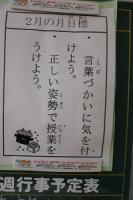 2月の月目標
・言葉づかいに気を付
けよう。
・正しい姿勢で授業を
うけよう。
週行事予定表